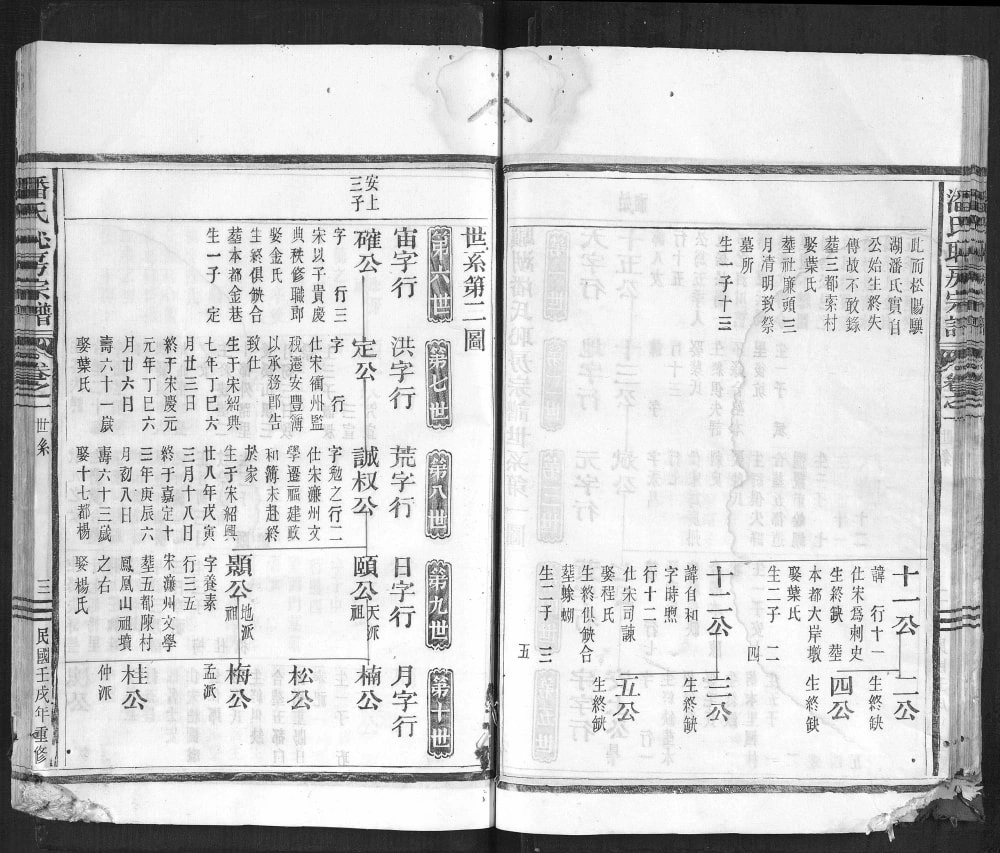 此而松陽驥
湖潘氏實自
公始生終失
傳故不敢錄
塟三都索村
娶葉氏
塟社廉頭三
月清明致祭
墓所
生一子十三
十一公
諱　行十一
仕宋爲刺史
生終缺　塟
本都大岸墩
娶葉氏
生二子　二
四
二公
生終缺
四公
生終缺
十二公
諱自和
字時煕
行十二
仕宋司諫
娶程氏
生終俱缺合
塟
生二子　三
五
三公
生終缺
五公
生終缺
世系第二圖
第六世
第七世
第八世
第九世
第十世
宙字行
洪字行
荒字行
日字行
月字行
安上
三子
確公
字　行三
宋以子貴慶
典秩修職郎
娶金氏
生終俱缺合
塟本都金巷
生一子　定
定公
字　行
仕宋衢州監
稅遷安豐簿
以承務郎告
致仕
生于宋紹興
七年丁巳六
月廿三日
終于宋慶元
元年丁巳六
月廿六日
壽六十一歲
娶葉氏
誠权公
字勉之行二
仕宋濂州文
學遷福建政
和簿未赴終
於家
生于宋紹興
廿八年戊寅
三月十八日
終于嘉定十
三年庚辰六
月初八日
壽六十三歲
娶十七都楊
頤公
天派
祖
顯公
地派
祖
字養素
行三五
宋濂州文學
塟五都陳村
鳳凰山祖墳
之右
娶楊氏
楠公
松公
梅公
孟派
桂公
仲派
世系
三
民國壬戌年重修